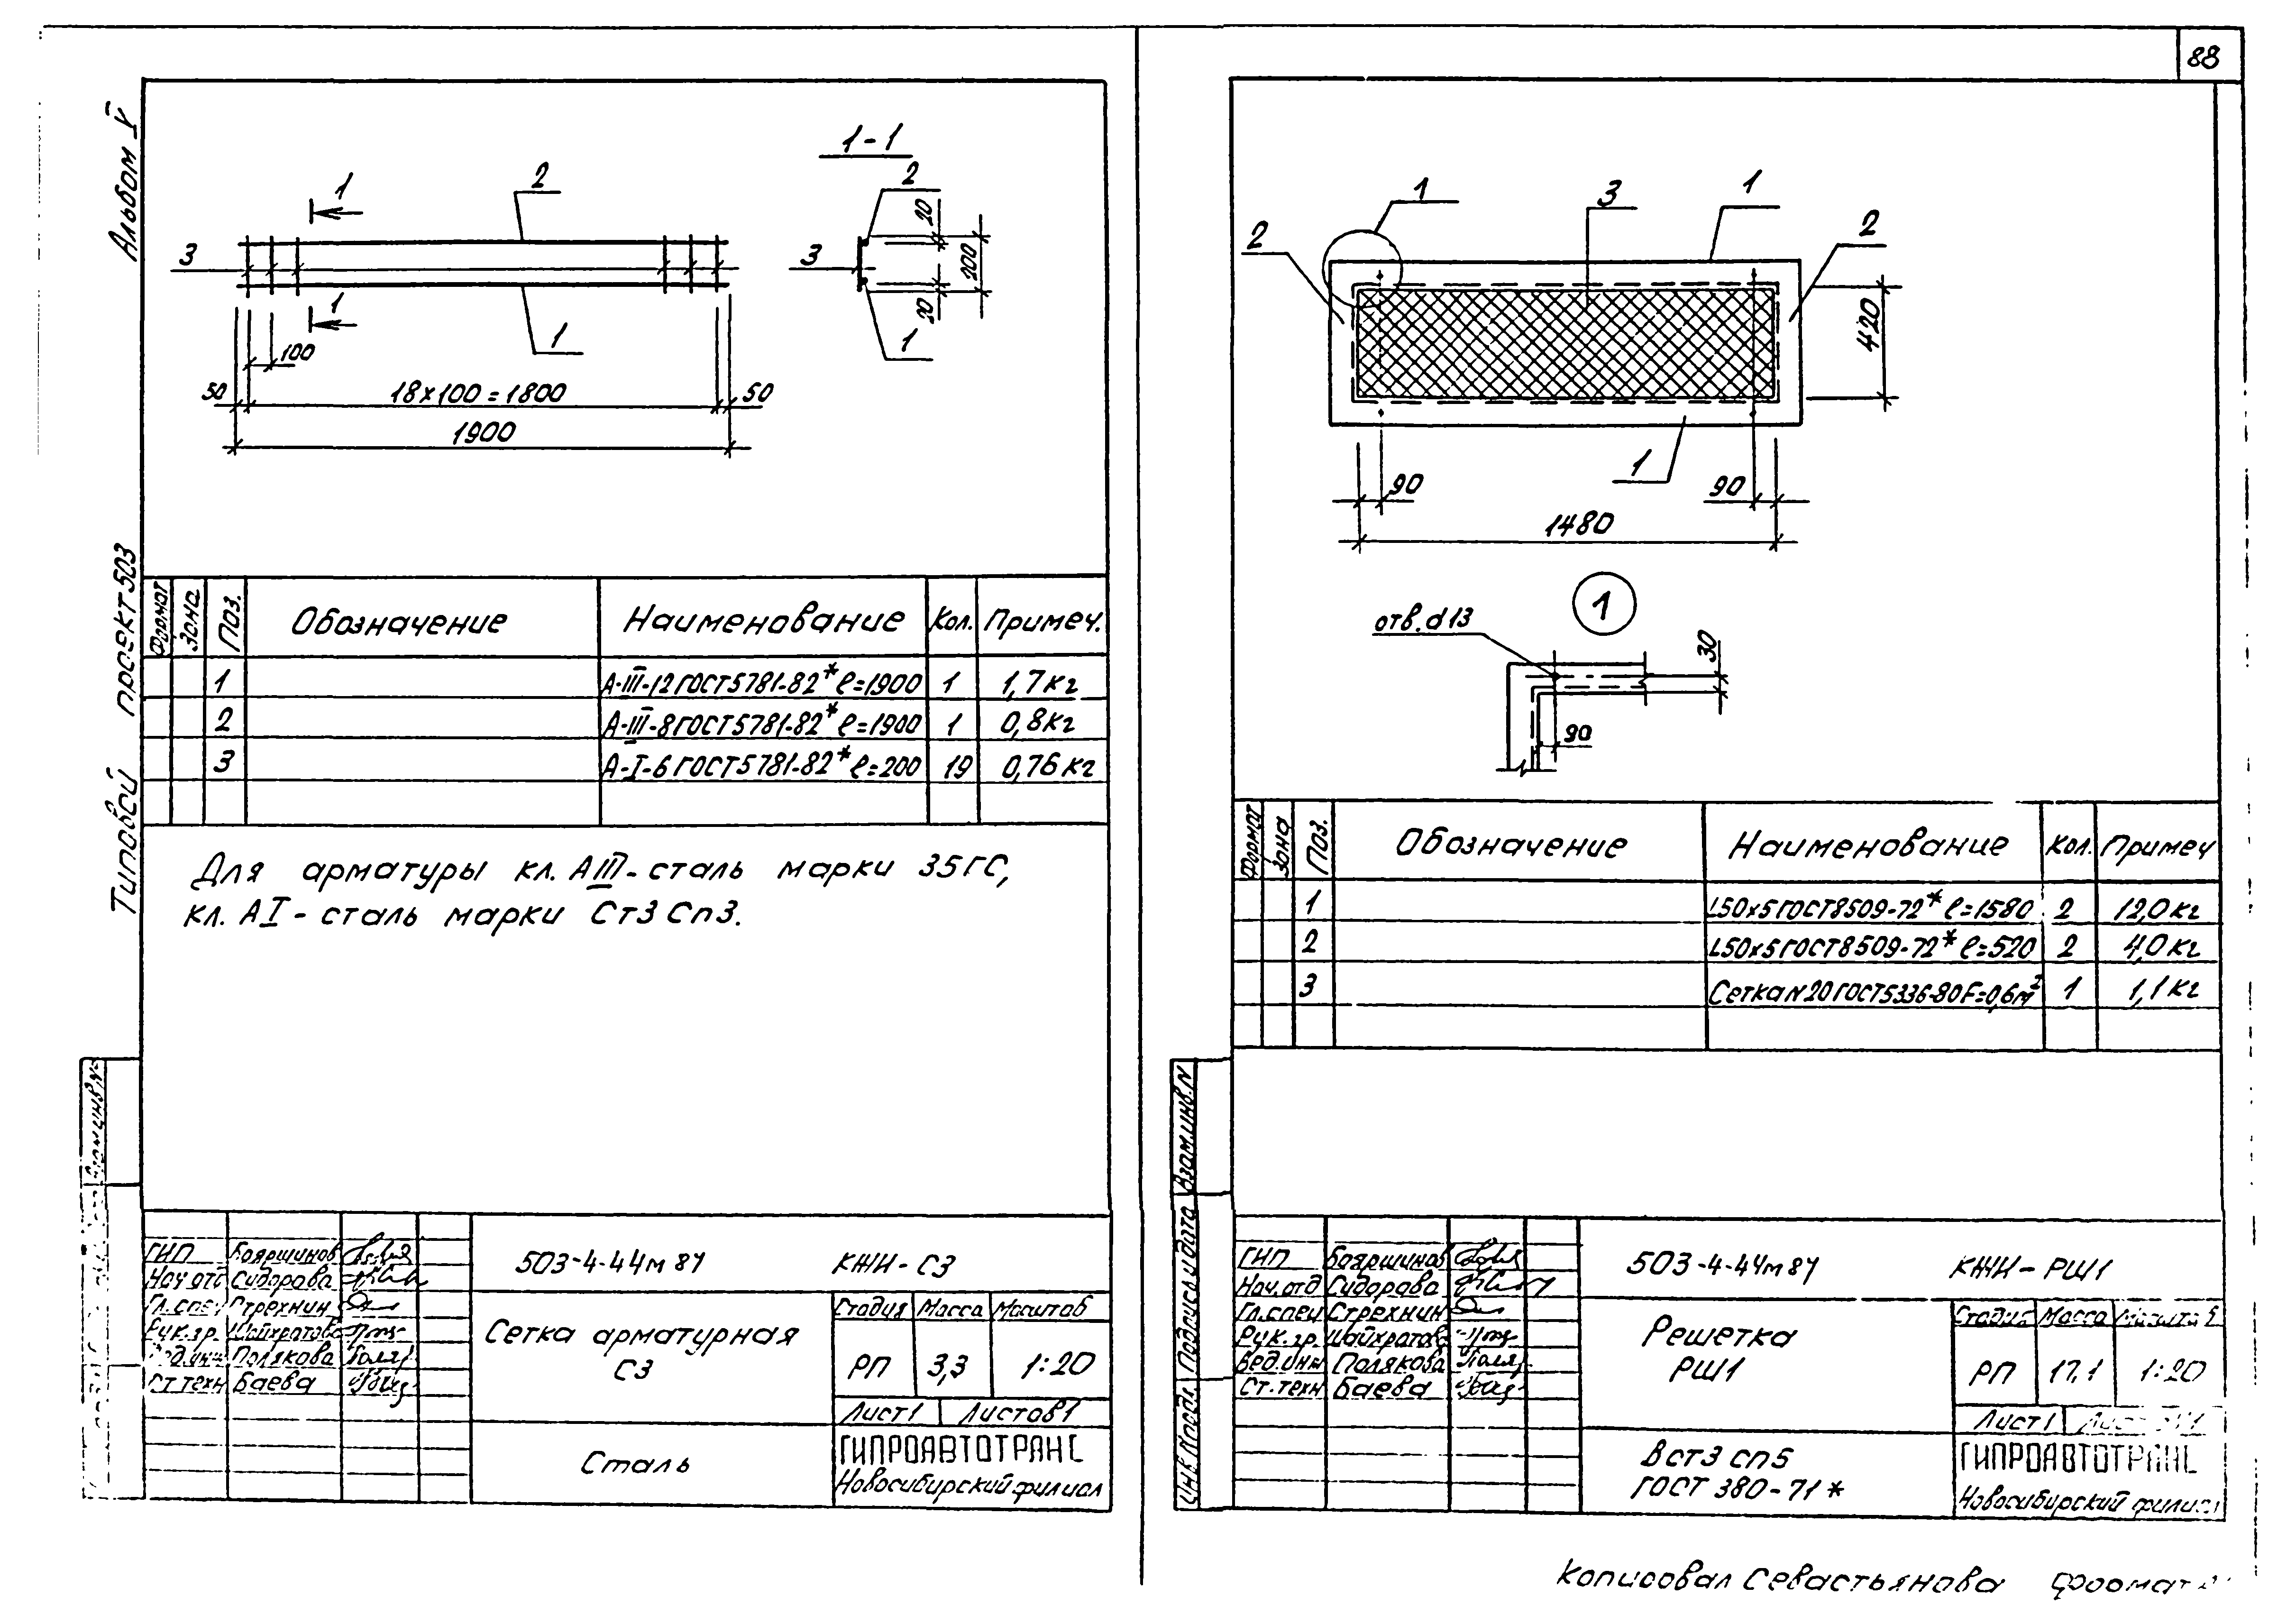 88
Альбом V
Типовой проект 503
1-1
1
2
3
1
1
100
50
18×100=1800
50
1900
2
3
1
20
200
20
Формат Зона Поз. Обозначение Наименование Кол. Примеч.
1 А-III-12 ГОСТ 5781-82* ℓ=1900 1 1,7 кг
2 А-III-8 ГОСТ 5781-82* ℓ=1900 1 0,8 кг
3 А-I-6 ГОСТ 5781-82* ℓ=200 19 0,76 кг
Для арматуры кл. АIII - сталь марки 35ГС,
кл. АI - сталь марки Ст3 Сп3.
ГИП Бояршинов
Нач. отд Сидорова
Гл. спец Стрехнин
Рук. гр. Шайхратова
Вед. инж Полякова
Ст. техн Баева
503-4-44м87 КЖИ-С3
Сетка арматурная
С3
Стадия Масса Масштаб
РП 3,3 1:20
Лист 1 Листов 1
Сталь
ГИПРОАВТОТРАНС
Новосибирский филиал
1
3
1
2
2
420
1
90
90
1480
1
отв. d13
30
90
Формат Зона Поз. Обозначение Наименование Кол. Примеч
1 L50×5 ГОСТ 8509-72* ℓ=1580 2 12,0 кг
2 L50×5 ГОСТ 8509-72* ℓ=520 2 4,0 кг
3 Сетка N20 ГОСТ 5336-80 F=0,6м² 1 1,1 кг
Взам.инв.N
Подпись и дата
Инв. N подл.
ГИП Бояршинов
Нач. отд Сидорова
Гл. спец Стрехнин
Рук. гр. Шайхратова
Вед. инж Полякова
Ст. техн Баева
503-4-44м87 КЖИ-РШ1
Решетка
РШ1
Стадия Масса Масштаб
РП 17,1 1:20
Лист 1
Вст3 сп5
ГОСТ 380-71*
ГИПРОАВТОТРАНС
Новосибирский филиал
Копировал Севастьянова Формат